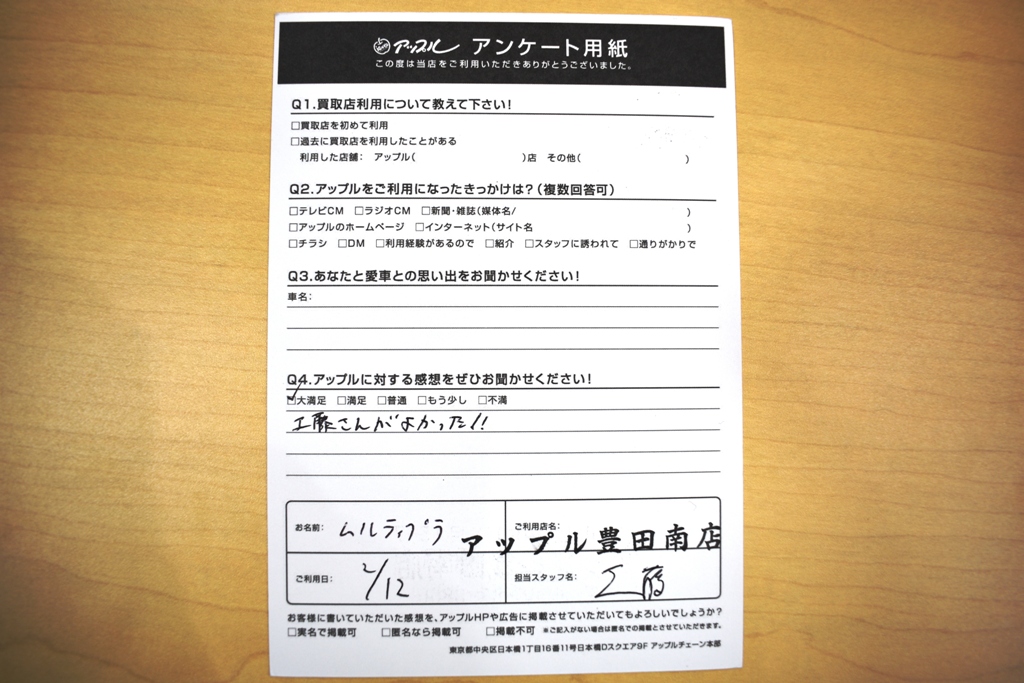 アップル アンケート用紙
この度は当店をご利用いただきありがとうございました。
Q1.買取店利用について教えて下さい!
□買取店を初めて利用
□過去に買取店を利用したことがある
利用した店舗: アップル( )店 その他( )
Q2.アップルをご利用になったきっかけは?(複数回答可)
□テレビCM □ラジオCM □新聞・雑誌(媒体名/ )
□アップルのホームページ □インターネット(サイト名 )
□チラシ □DM □利用経験があるので □紹介 □スタッフに誘われて □通りがかりで
Q3.あなたと愛車との思い出をお聞かせください!
車名:
Q4.アップルに対する感想をぜひお聞かせください!
☑大満足 □満足 □普通 □もう少し □不満
工藤さんがよかった!!
お名前: ムルティプラ
ご利用店名: アップル豊田南店
ご利用日: 2/12
担当スタッフ名: 工藤
お客様に書いていただいた感想を、アップルHPや広告に掲載させていただいてもよろしいでしょうか?
□実名で掲載可 □匿名なら掲載可 □掲載不可 ※ご記入がない場合は匿名での掲載とさせていただきます。
東京都中央区日本橋1丁目16番11号日本橋Dスクエア9F アップルチェーン本部